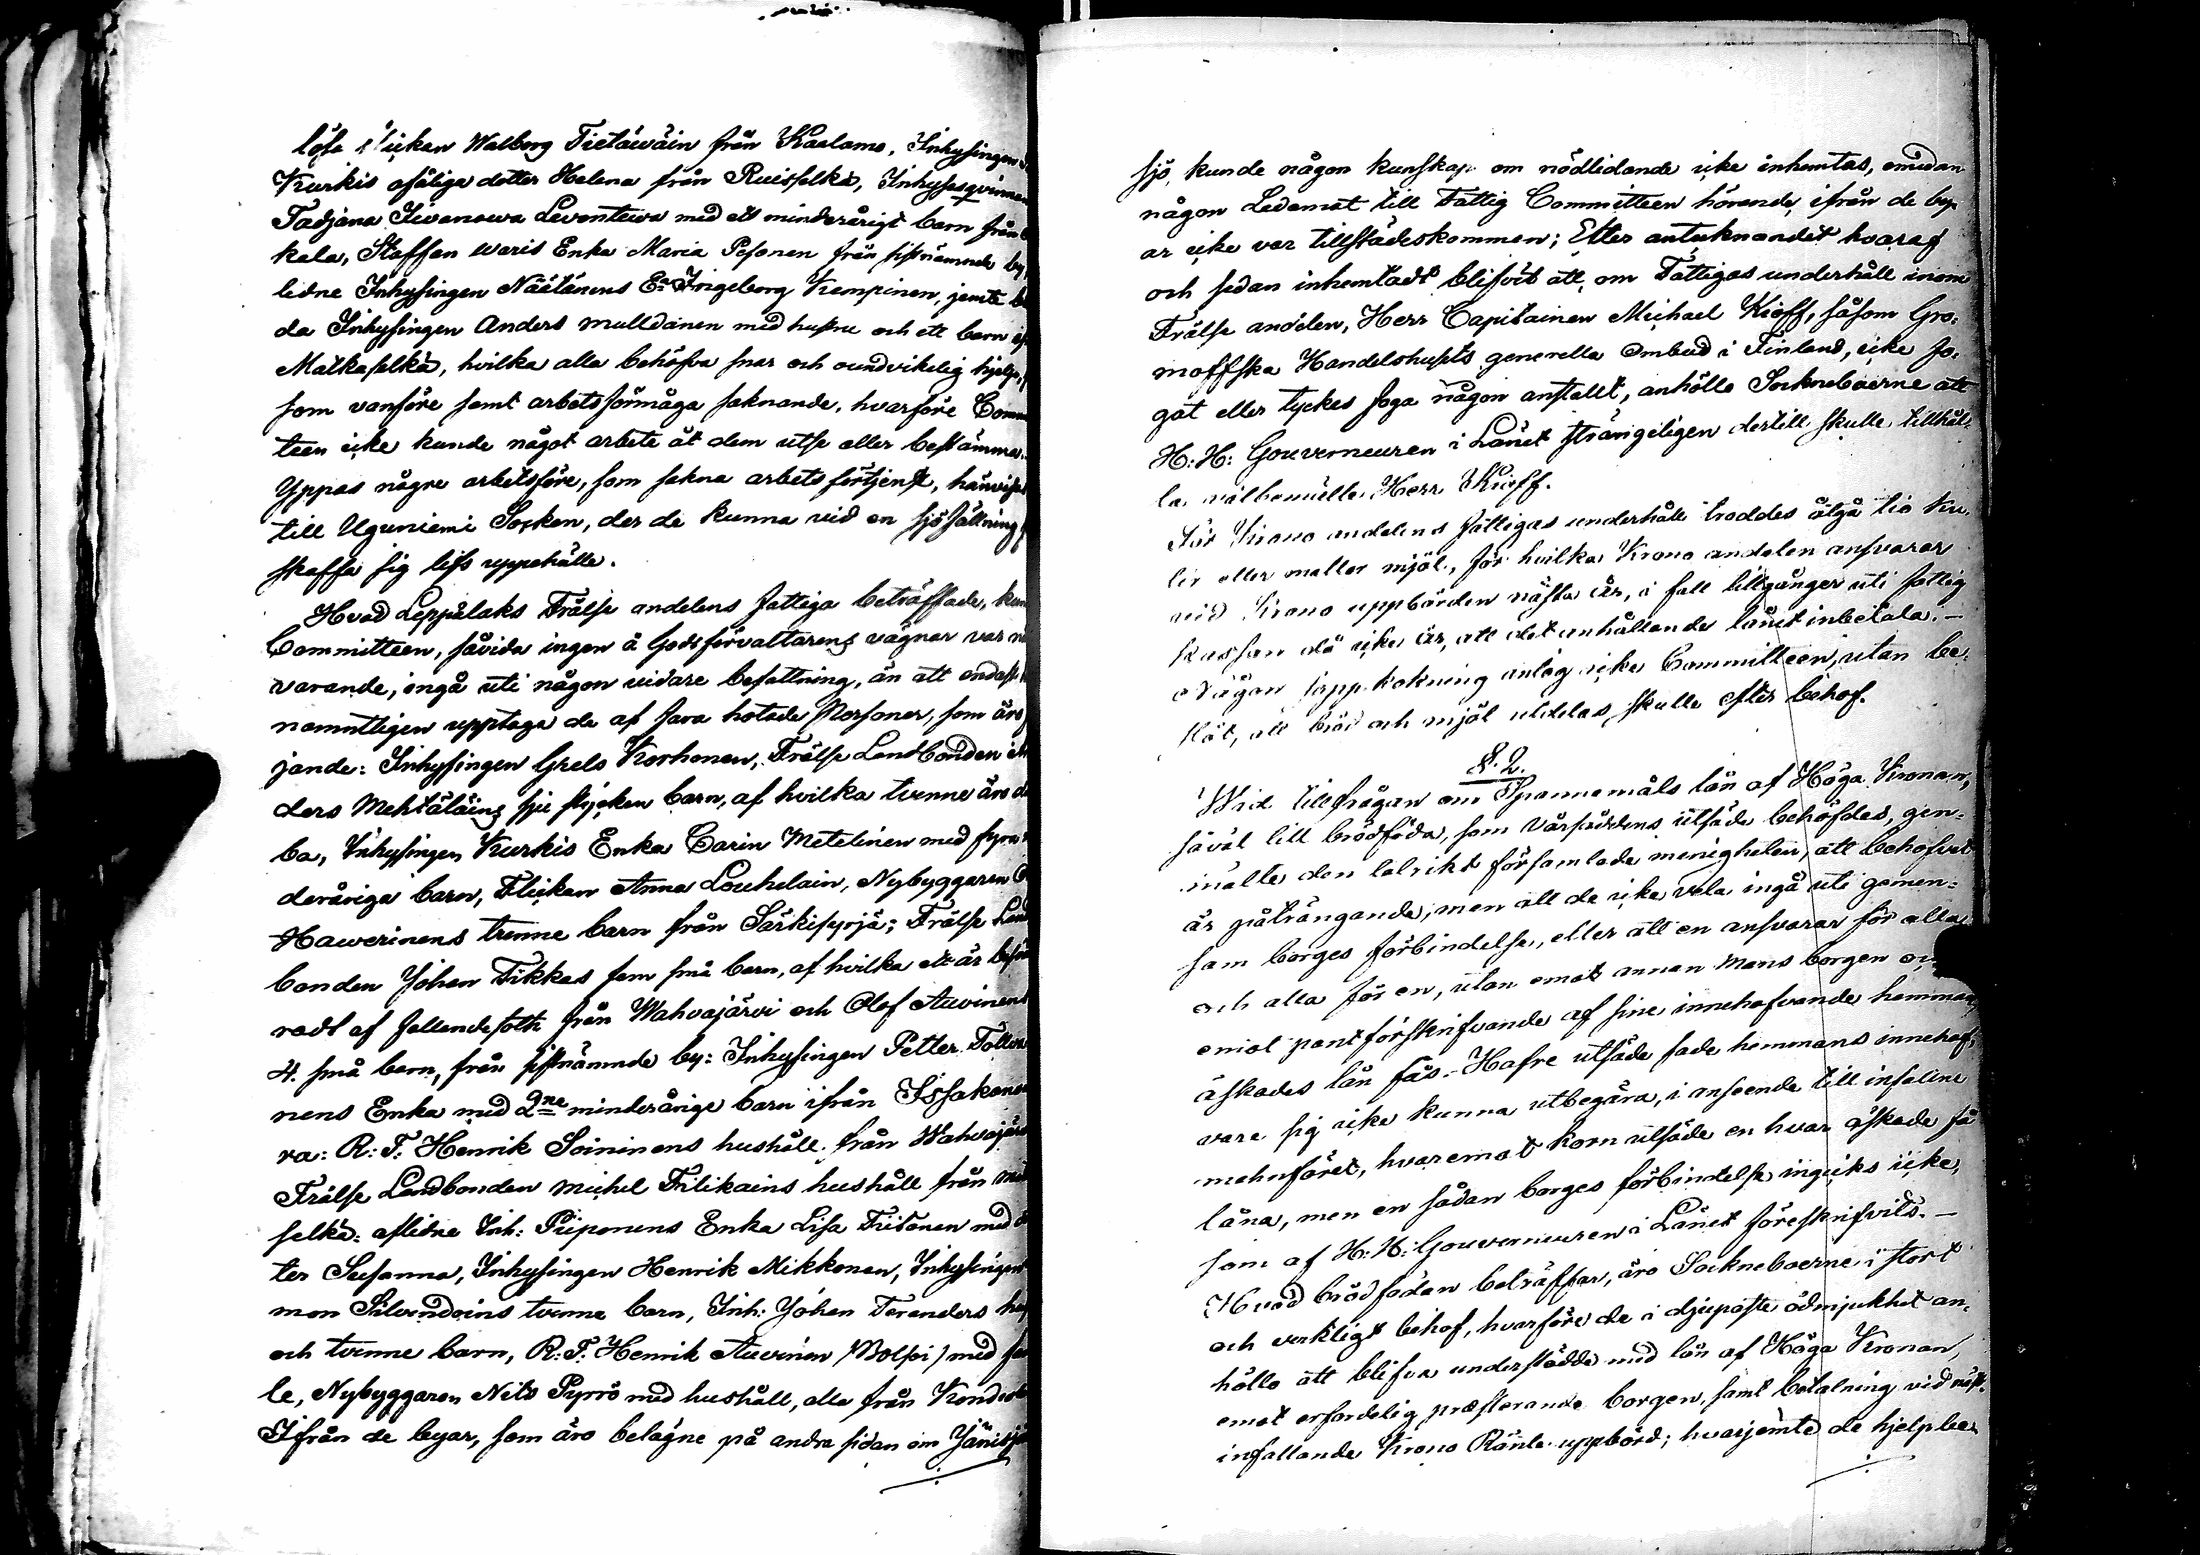 löse Flickan Walborg Tietäwäin från Kaalamo, Inhysingen
Kurkis ofäliga dotter Helena från Ruisselkä, Inhysesqvinnan
Tadjana Iivanowa Leventeiva med ett minderårigt barn från
kala, Staffan waris Enka Maria Pesonen från sistnämnde by,
lidne Inhysingen Näätänens Ea Ingeborg Kempinen, jemte
da Inhysingen Anders Mulldainen med hustru och ett barn
Matkaselkä, hvilka alla behöfva snar och oundvikelig hjelp,
som vanföre samt arbetsförmåga saknande, hvarföre Comm
teen icke kunde något arbete åt dem utse eller bestämma.
Yppas någre arbetsföre, som sakna arbets förtjenst, hänvises
till Uguniemi Socken, der de kunna vid en sjöfällning
skaffa sig lifs uppehälle.
Hvad Leppälaks Frälse andelens fattiga beträffade, kun
Committeen, såvida ingen å Godsförvaltarens vägnar var nä
varande, ingå uti någon vidare befattning, än att endast
namntligen upptaga de af fara hotade Personer, som äro
jande: Inhysingen Grels Korhonen, Frälse Landbonden
ders Mehtäläins sju stycken barn, af hvilka tvenne äro
ba, Inhysingen Kurkis Enka Carin Metelinen med fyra
deråriga barn, Flickan Anna Louhelain, Nybyggaren
Hawerinens trenne barn från Särkisyrjä; Frälse Land
bonden Johan Tikkas fem små barn, af hvilka ett är besvä
radt af fallandesoth från Wahvajärvi och Olof Auvinens
4. små barn, från sistnämnde by: Inhysingen Petter Tolva
nens Enka med 2ne minderårige barn ifrån Issakan
ra: R: F: Henrik Soininens hushåll från Wahvajär
Frälse Landbonden Michel Tilikains hushåll från
selkä: aflidne Inh: Piiponens Enka Lisa Tiitonen med
ter Susanna, Inhysingen Henrik Mikkonen, Inhysingen
mon Silvendoins tvenne barn, Inh: Johan Teranders
och tvenne barn, R: F: Henrik Auvinen /Wolsoi/ med
le, Nybyggaren Nils Pyrrö med hushåll, alla från
Ifrån de byar, som äro belägne på andra sidan om Jänis
sjö, kunde någon kunskap om nödlidande icke inhemtas, emedan
någon Ledamot till Fattig Committeen hörande, ifrån de by-
ar icke var tillstädeskommen; Efter antecknandet hvaraf
och sedan inhemtadt blifvit att, om Fattigas underhåll inom
Frälse andelen, Herr Capitainen Michael Kieff, såsom Gro-
moffska Handelshusets generella Ombud i Finland, icke fo-
gat eller tyckes foga någon anstallt, anhöllo Sockneboerne att
H: H: Gouverneuren i Länet strängeligen dertill skulle tillhål-
la välbemälte Herr Kieff.
För Krono andelens fattigas underhåll troddes åtgå tio Ku-
lir eller mattor mjöl, för hvilka Krono andelen ansvarar
vid Krono uppbörden nästa år, i fall tillgångar uti fattig
kassan då icke är, att det anhållande lånet inbetala.—
Någon sopp kokning antog icke Committeen, utan be-
slöt, att bröd och mjöl utdelas skulle efter behof.
§. 2.
Wid tillfrågan om Spannemåls lån af Höga Kronan,
såväl till brödföda, som Vårsäddens utsäde behöfdes, gen-
mälte den talrikt församlade menigheten, att behofvet
är påträngande, men att de icke vela ingå uti gemen-
sam borges förbindelse, eller att en ansvarar för alla
och alla för en, utan emot annan mans borgen och
emot pantförskrifvande af sine innehafvande hemman,
äskades lån fås.— Hafre utsäde sade hemmans innehaf-
vare sig icke kunna utbegära, i anseende till infaline
mehnföret, hvaremot korn utsäde en hvar äskade få
låna, men en sådan borges förbindelse ingicks icke,
som af H: H: Gouverneuren i Länet föreskrifvits.—
Hvad brödfödan beträffar, äro Sockneboerne i stort
och verkligt behof, hvarföre de i djupaste ödmjukhet an-
höllo att blifva understödde med lån af Höga Kronan,
emot erforderlig præsterande borgen, samt betalning vid näst-
infallande Krono Ränte uppbörd; hvarjemte de hjelpbe-